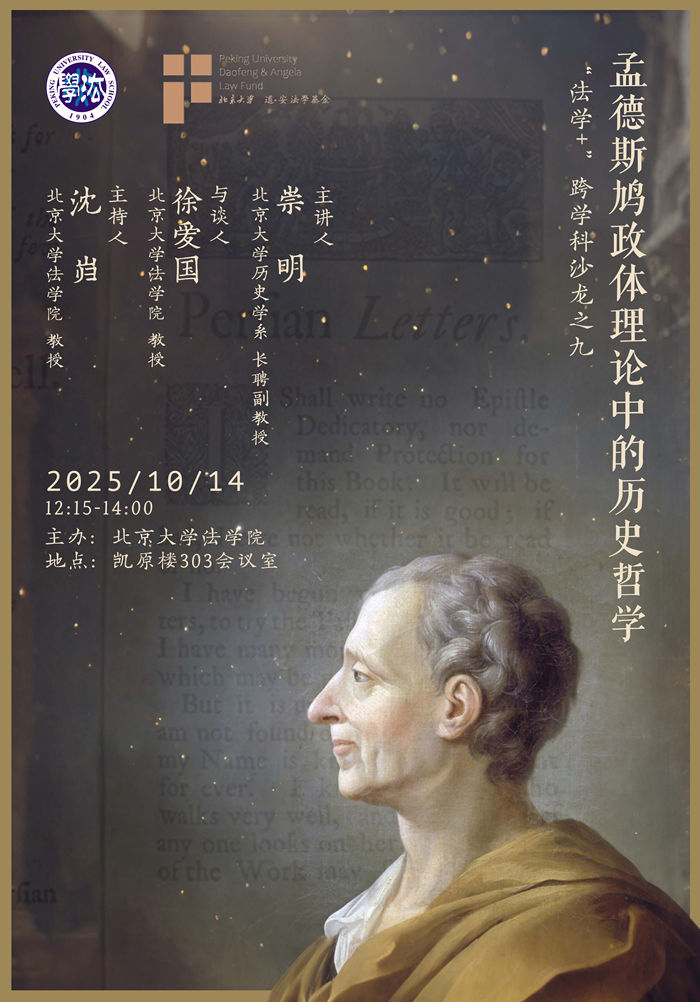 孟德斯鸠政体理论中的历史哲学
“法学+”跨学科沙龙之九
PEKING UNIVERSITY LAW SCHOOL
學法
1904
Peking University
Daofeng & Angela
Law Fund
北京大学 道·安法學基金
主讲人
崇明
北京大学历史学系 长聘副教授
与谈人
徐爱国
北京大学法学院 教授
主持人
沈岿
北京大学法学院 教授
2025/10/14
12:15-14:00
主办：北京大学法学院
地点：凯原楼303会议室
Persian Letters.
Shall write no Epistle
Dedicatory, nor de-
mand Protection for
this Book: It will be
read, if it is good; if
not whether it be read
I have begun
ters, to try the
I have many mo
which may be
But it is
am not
my Name is
for ever.
walks very well,
any one looks on her
of the Work may